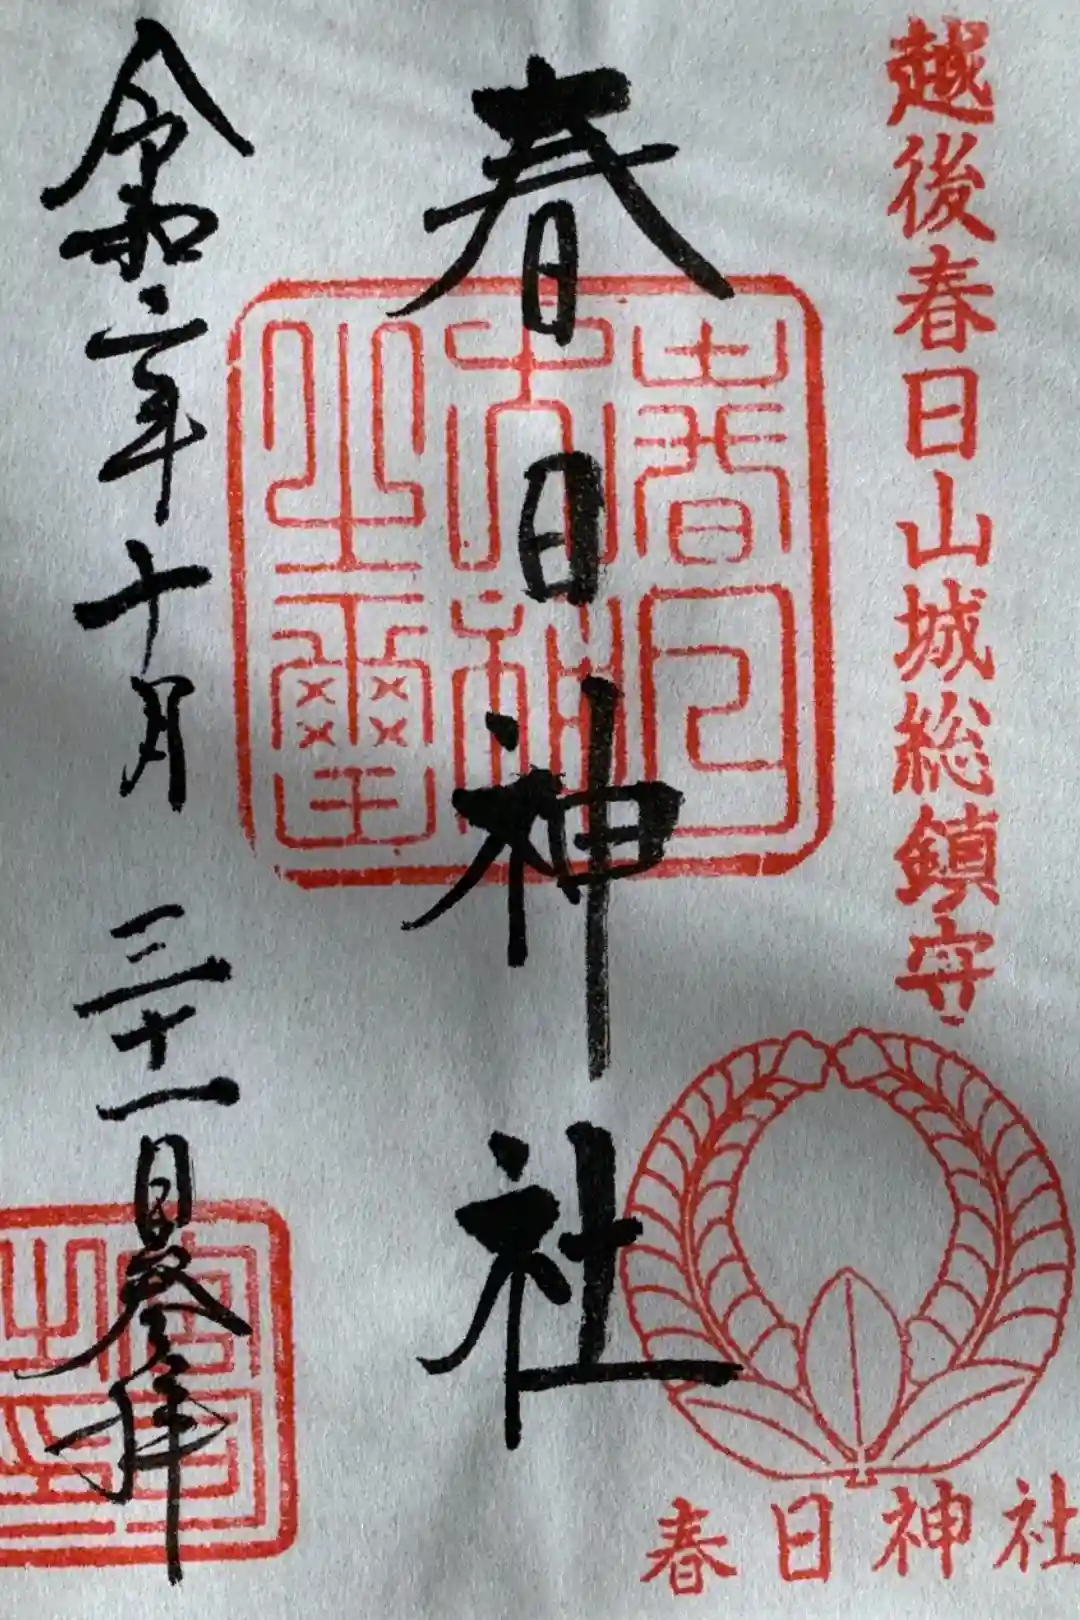 越後春日山城総鎮守
春日神社
春日神社
春日
大神
之璽
令和二年十月三十一日参拝